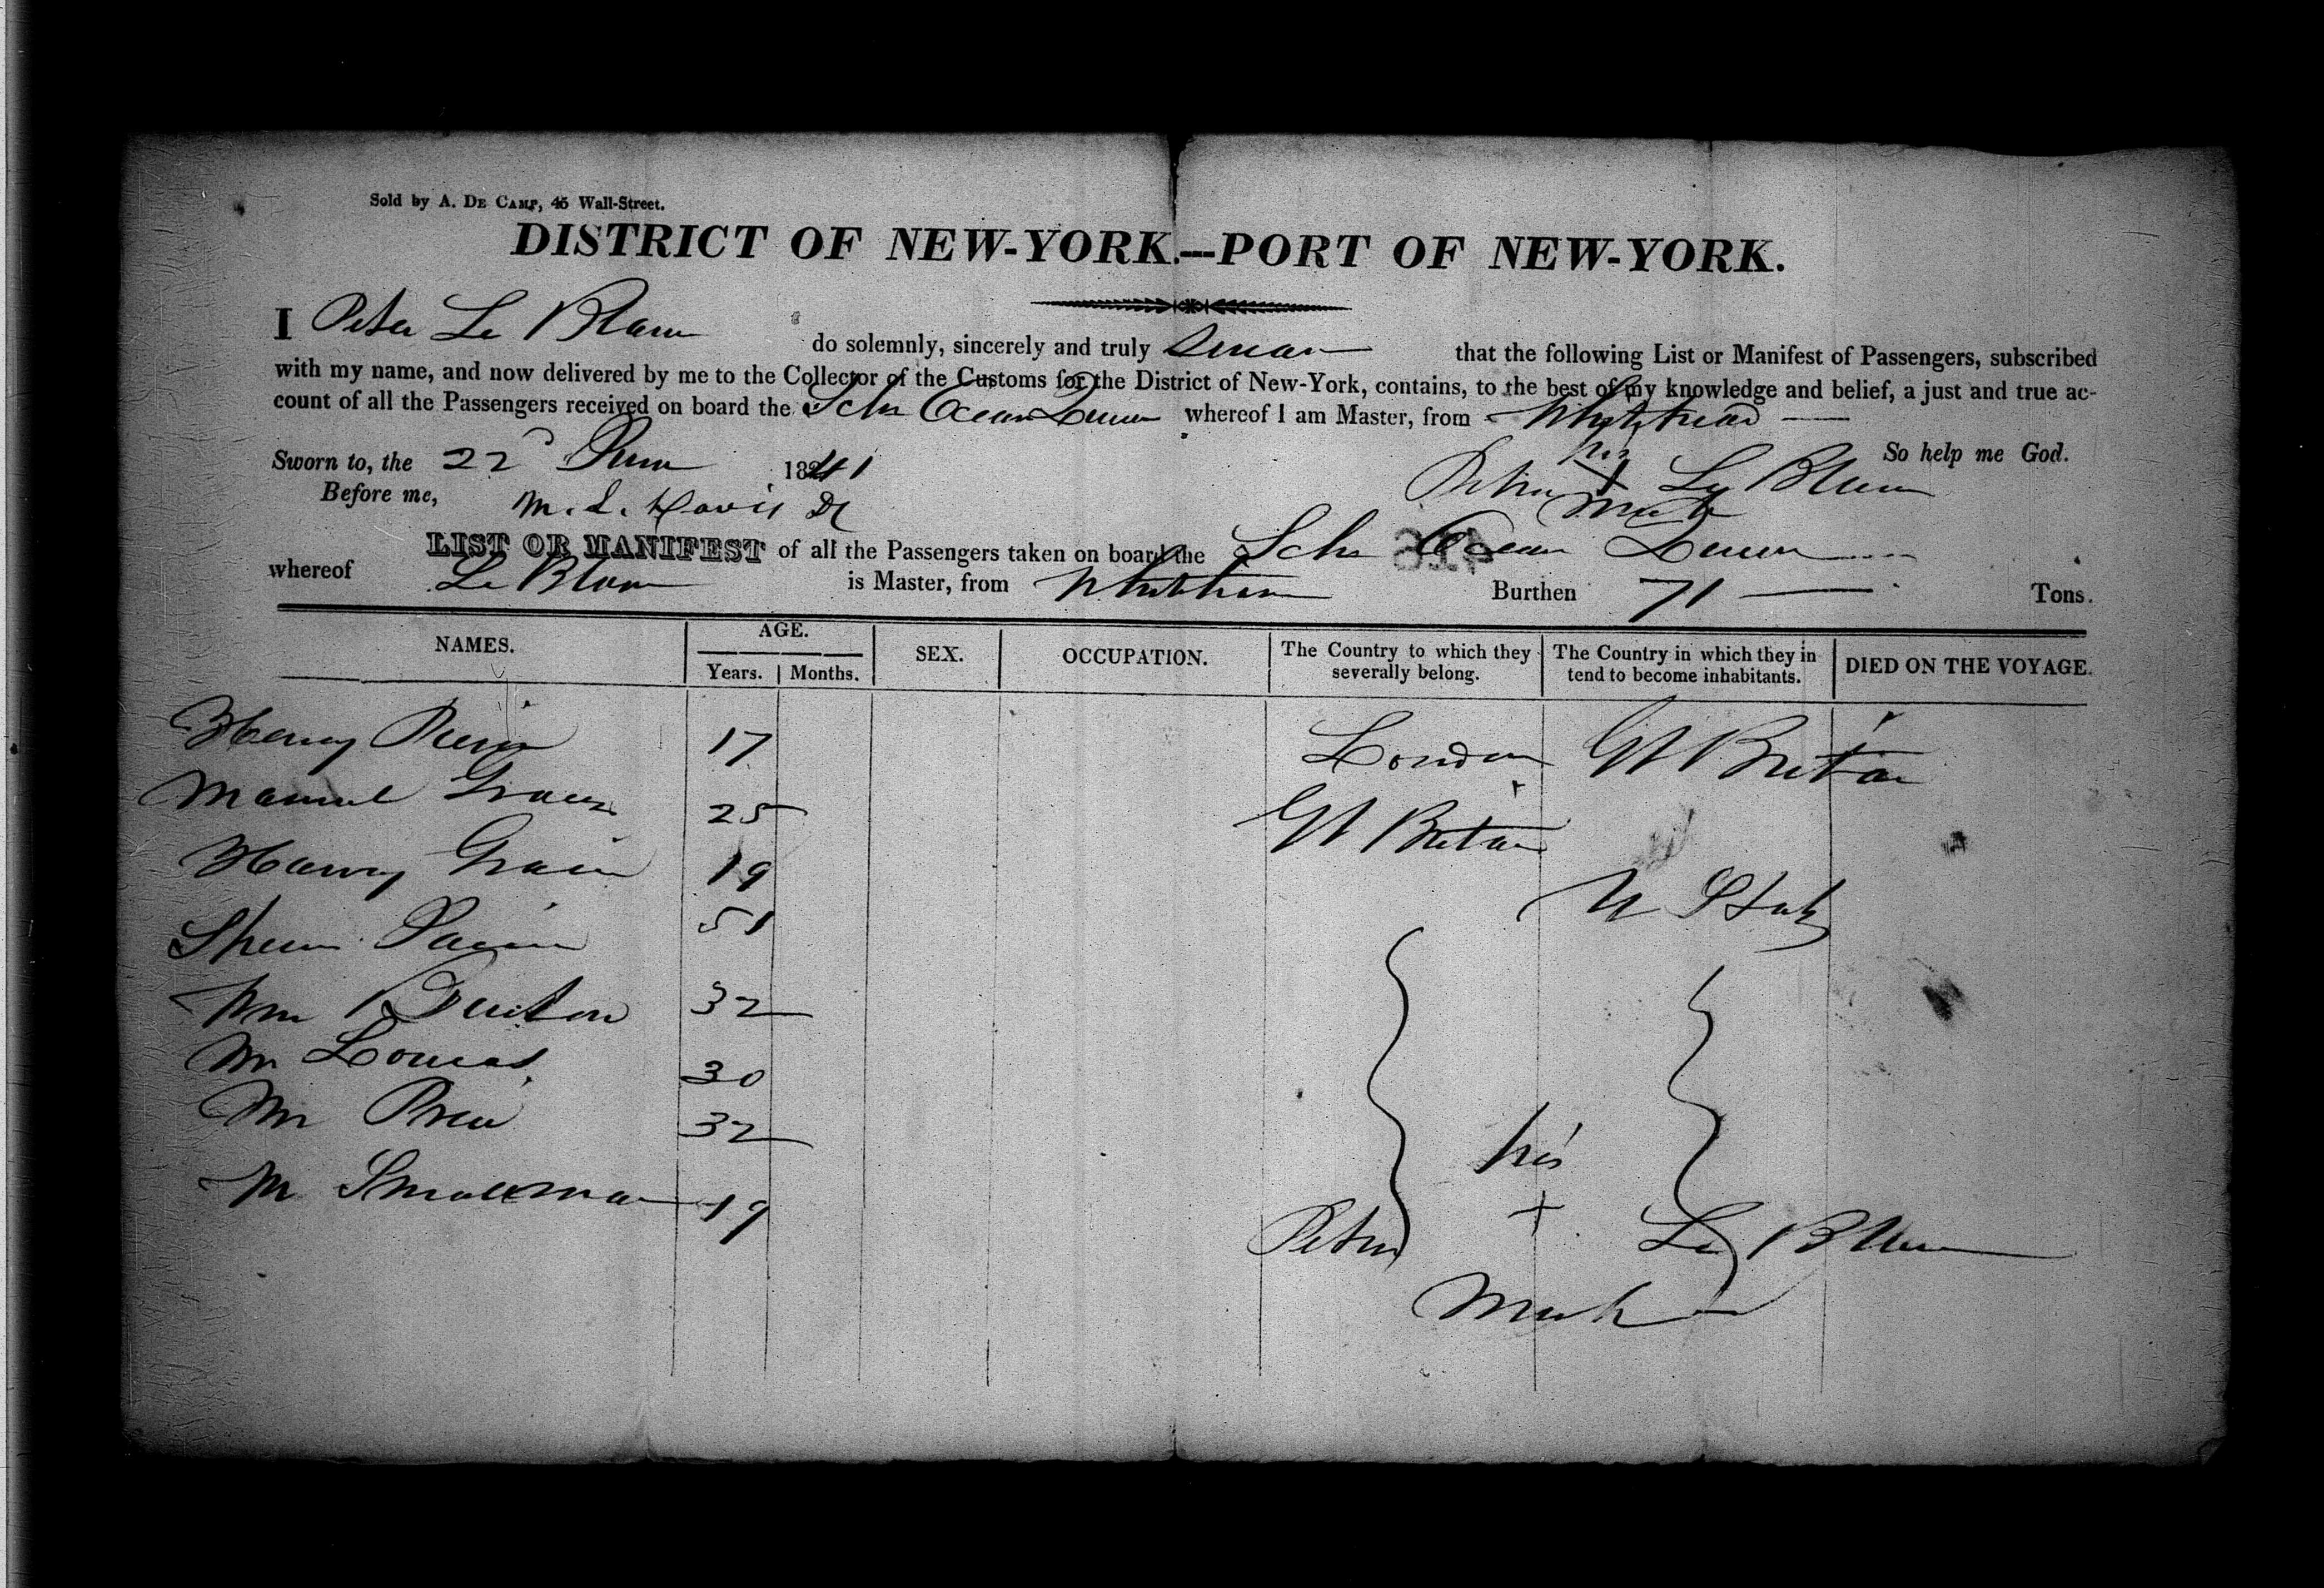 Sold by A. DE CAMP, 45 Wall-Street.
DISTRICT OF NEW-YORK.—PORT OF NEW-YORK.
I Peter Le Blanc do solemnly, sincerely and truly swear that the following List or Manifest of Passengers, subscribed
with my name, and now delivered by me to the Collector of the Customs for the District of New-York, contains, to the best of my knowledge and belief, a just and true ac-
count of all the Passengers received on board the Schr Ocean whereof I am Master, from
So help me God.
Sworn to, the 22 June 1841
his
Peter + Le Blanc
mark
Before me, M. L. Davis
LIST OR MANIFEST of all the Passengers taken on board the Schr Ocean
whereof Le Blanc is Master, from Burthen 71 Tons.
NAMES. AGE. Years. Months. SEX. OCCUPATION. The Country to which they severally belong. The Country in which they in tend to become inhabitants. DIED ON THE VOYAGE.
Henry 17 London Gt Britain
Manuel 25 Gt Britain
Harry 19 U States
51
Wm 32
Mr 30
Mr 32
M 19
his
Peter + Le Blanc
Mark